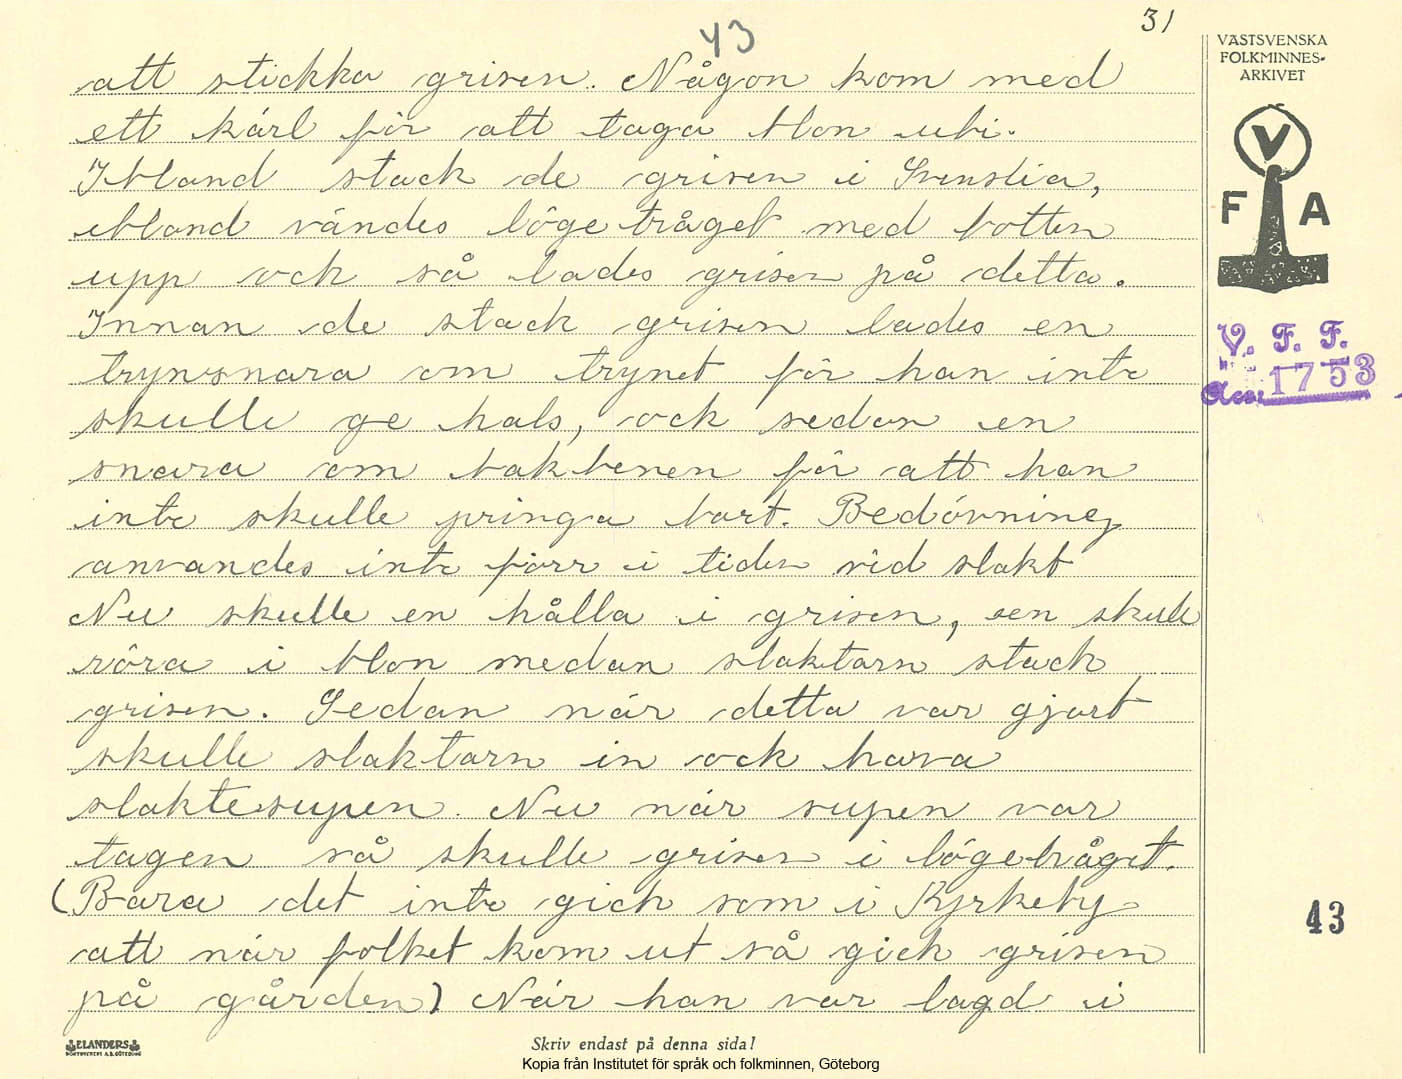 31
43
VÄSTSVENSKA
FOLKMINNES-
ARKIVET
V
F A
V. F. F.
Acc. 1753
att stickka grisen. Någon kom med
ett kärl för att taga blon uti.
Ibland stack de grisen i
ibland vändes lögetråget med botten
upp och så lades grisen på detta.
Innan de stack grisen lades en
trynsnara om trynet för han inte
skulle ge hals, ock sedan en
snara om bakbenen för att han
inte skulle springa bort. Bedövning
anvandes inte förr i tiden vid slakt
Nu skulle en hålla i grisen, en skule
röra i blon medan slaktarn stack
grisen. Sedan när detta var gjort
skulle slaktarn in ock hava
slaktesupen. Nu när supen var
tagen så skulle grisen i lögetråget.
(Bara det inte gick som i Kyrkeby
att när folket kom ut så gick grisen
på gården) När han var lagd i
43
ELANDERS
Skriv endast på denna sida!
Kopia från Institutet för språk och folkminnen, Göteborg